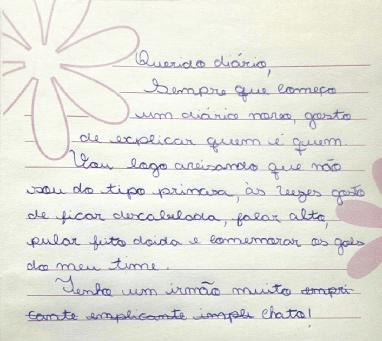 Querido diário,
Sempre que começo
um diário novo, gosto
de explicar quem é quem.
Vou logo avisando que não
sou do tipo princesa, às vezes gosto
de ficar descabelada, falar alto,
pular feito doida e comemorar os gols
do meu time.
Tenho um irmão muito empri
cante emplicante impli chato!